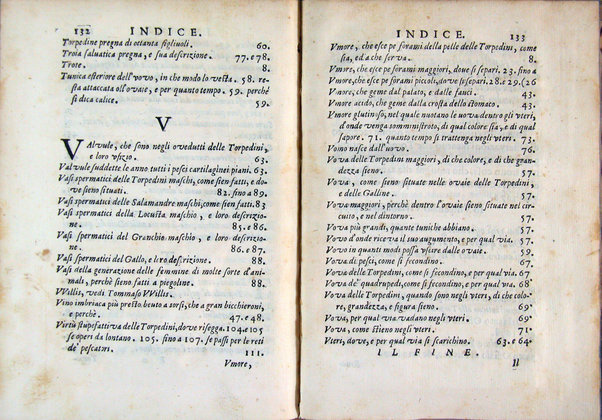 132 INDICE.
Torpedine pregna di ottanta figliuoli. 60.
Troia saluatica pregna, e sua descrizione. 77. e 78.
Trote. 8.
Tunica esteriore dell'vovo, in che modo lo vesta. 58. re-
sta attaccata all'ovaie, e per quanto tempo. 59. perchè
si dica calice. 59.
V
VAlvule, che sono negli oveducti delle Torpedini,
e loro vfizio. 63.
Valvule suddette le anno tutti i pesci cartilaginei piani. 63.
Vasi spermatici delle Torpedini maschi, come sien fatti, e do-
ve sieno situati. 82. fino a 89.
Vasi spermatici delle Salamandre maschi, come sien fatti. 83
Vasi spermatici della Locusta maschio, e loro descrizio-
ne. 85. e 86.
Vasi spermatici del Granchio maschio, e loro descrizio-
ne. 86. e 87.
Vasi spermatici del Gallo, e loro descrizione. 88.
Vasi della generazione delle femmine di molte sorte d'ani-
mali, perchè sieno fatti a piegoline. 88.
VVillis, vedi Tommaso VVillis.
Vino imbriaca più presto beuto a sorsi, che a gran bicchieroni,
e perchè. 47. e 48.
Virtù stupefattiva delle Torpedini, dove risegga. 104. e 105
se operi da lontano. 105. fino a 107. se passi per le reti
de' pescatori. 111.
Vmore,
INDICE. 133
Vmore, che esce pe forami della pelle delle Torpedini, come
sia, ed a che serva. 8.
Vmore, che esce pe forami maggiori, doue si separi. 23. fino a
Vmore, che esce pe forami piccoli, dove si separi. 28. e 29. (26
Vmore, che geme dal palato, e dalle fauci. 43.
Vmore acido, che geme dalla crosta dello stomaco. 43.
Vmore glutinoso, nel quale nuotano le vova dentro gli vteri,
d'onde venga somministrato, di qual colore sia, e di qual
sapore. 71. quanto tempo si trattenga negli vteri. 73.
Vomo nasce dall'vovo. 76.
Vova delle Torpedini maggiori, di che colore, e di che gran-
dezza sieno. 57.
Vova, come sieno situate nelle ovaie delle Torpedini,
e delle Galline. 57.
Vova maggiori, perchè dentro l'ovaio sieno situate nel cir-
cuito, e nel dintorno. 57.
Vova più grandi, quante tuniche abbiano. 57.
Vovo d'onde riceva il suo augumento, e per qual via. 57.
Vovo in quanti modi possa vscire dalle ovaie. 59.
Vova di pesci, come si fecondino. 67.
Vova delle Torpedini, come si fecondino, e per qual via. 67
Vova de' quadrupedi, come si fecondino, e per qual via. 68
Vova delle Torpedini, quando sono negli vteri, di che colo-
re, grandezza, e figura sieno. 69.
Vova, per qual via vadano negli vteri. 69.
Vova, come stieno negli vteri. 71.
Vteri, dove, e per qual via si scarichino. 63. e 64.
IL FINE.
Il